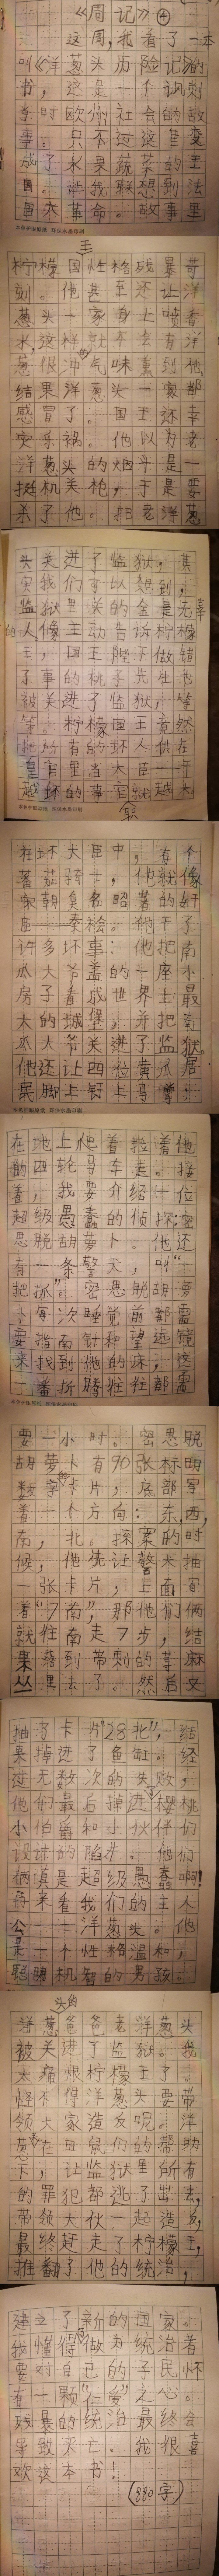 《周记》④
这周,我看了一本
叫《洋葱头历险记》的
书,这是一个讽刺故
事
当时欧州社会的
事。只不过这里变
成了水果蔬菜的王
国。让我联想到法
国大革命。故事里
柠檬国王性格残暴苛
刻。他甚至还让洋
葱头一家身上喷香
水,这样就会有洋
葱很冲的气味熏到他
结果洋葱头一家都
感冒了。国王还幸
灾乐祸。他以为老
洋葱头的烟斗是一
挺机关枪,于是要
杀了他。把老洋葱
头关进了监狱,其
实我们可以想到,
监狱里关的全是无辜
的人,像主动告诉柠檬
王,国王陛下做错
了事的桃子先生也
被关进了监狱,等
等。柠檬国王竟然
把所有的坏人供在
皇宫里当大臣——干
越坏的事官职就越大
在坏大臣中,有个
蕃茄骑士,他就像
宋朝臭名昭著的奸
臣——秦桧。他干了
许多坏事:他把南
瓜大爷盖的一座小
房子看成世界上最
大的城堡,并把南
瓜大爷关进了监狱。
他还让四位黄瓜居
民脚上钉上马掌,
在地上爬着拉着他
的四轮马车走。接
着,我要介绍一位
超级愚蠢的侦探:密
思脱胡萝卜,他还
有一条警犬,叫“一
把抓”。密思脱胡萝
卜每次睡觉前都需
要指南针和望远镜
来找到他的床,这
一番折腾往往都需
要一小时。密思脱
胡萝卜有70张标明
数字的卡片,底部写
着一个方向:东,西,
南,北。探案的时
候,他先让警犬抽
一张卡片,上面写
着“7南”,那他们俩
就往南走7步,结
果落到带刺的荨麻
丛里去了。然后又
抽了卡片“28北”,结
果掉进了鱼缸。经
过无数次的失败,
他们最后掉进樱桃
小伯爵和小伙伴们
设计的陷井。他们
俩真是超级愚蠢啊!
再来看我们的主人
公——洋葱头。他
是一个性格温和,
聪明机智的男孩。
洋葱头的爸爸老洋葱头
被关进了监狱。我
太痛恨柠檬王了。
怪不得洋葱头要带
领大家造反呢。洋
葱头在鼹鼠们的帮助
下,让监狱里所有
的罪犯都逃了出去,
带领大伙一起造反,
最终赶走了柠檬王,
推翻了他的统治,
建立了新的国家。
我懂得了做为统治者
要对自己的子民怀
有一颗“仁爱”之心。
残暴的统治最终会
导致灭亡。我很喜
欢这本书!
(880字)